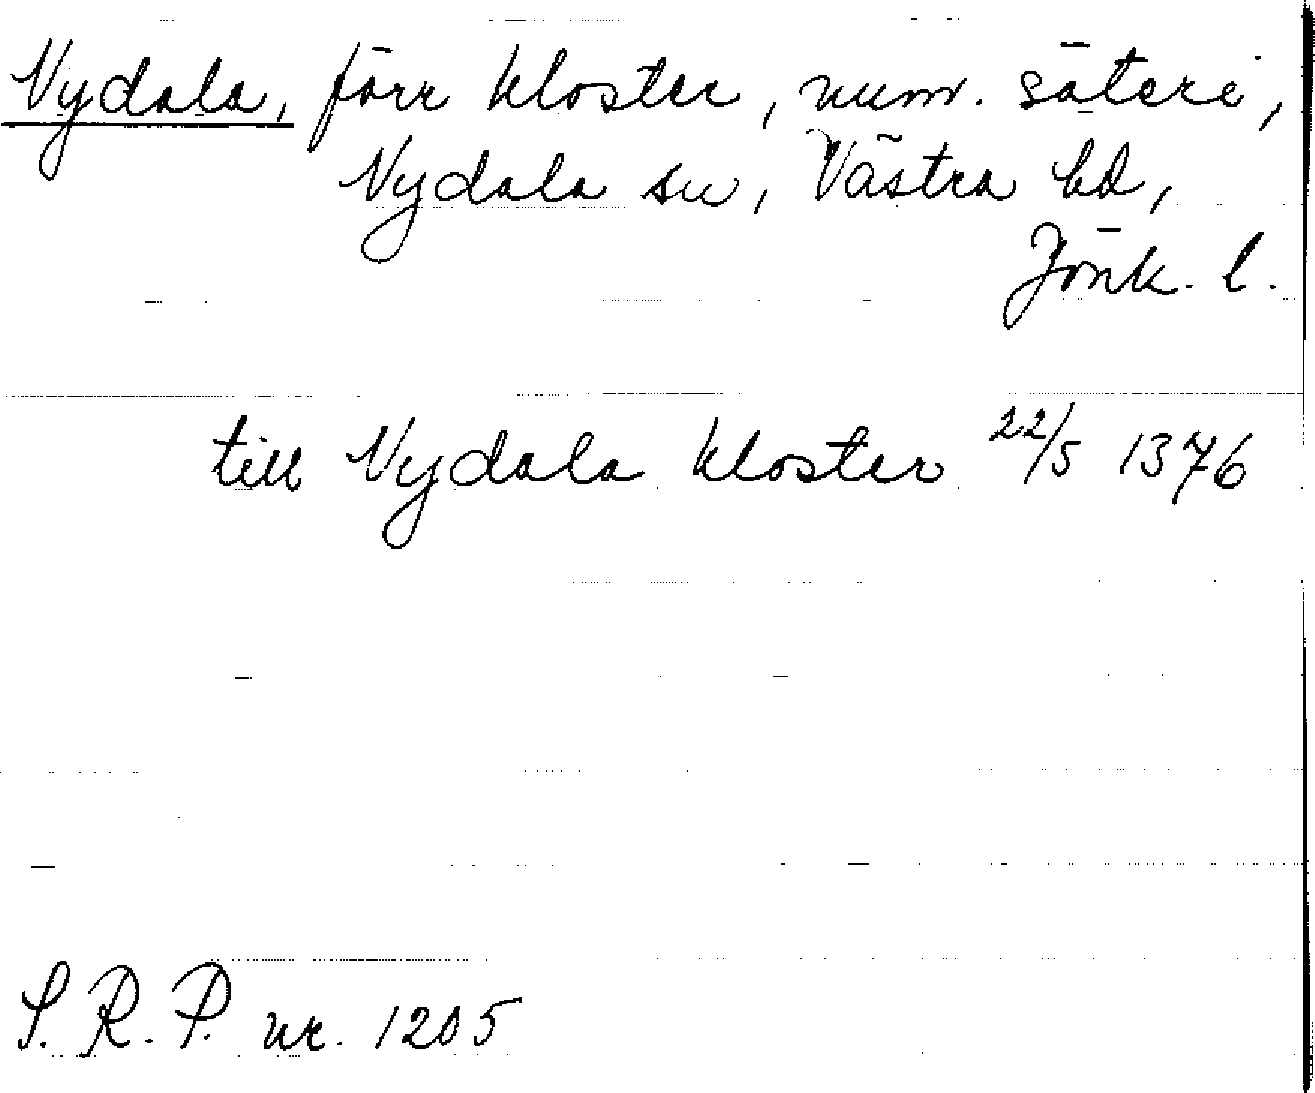 Nydala, förr kloster, num. säteri,
Nydala sn, Västra hd,
Jönk. l.
till Nydala kloster 22/5 1376
S.R.P. nr. 1205